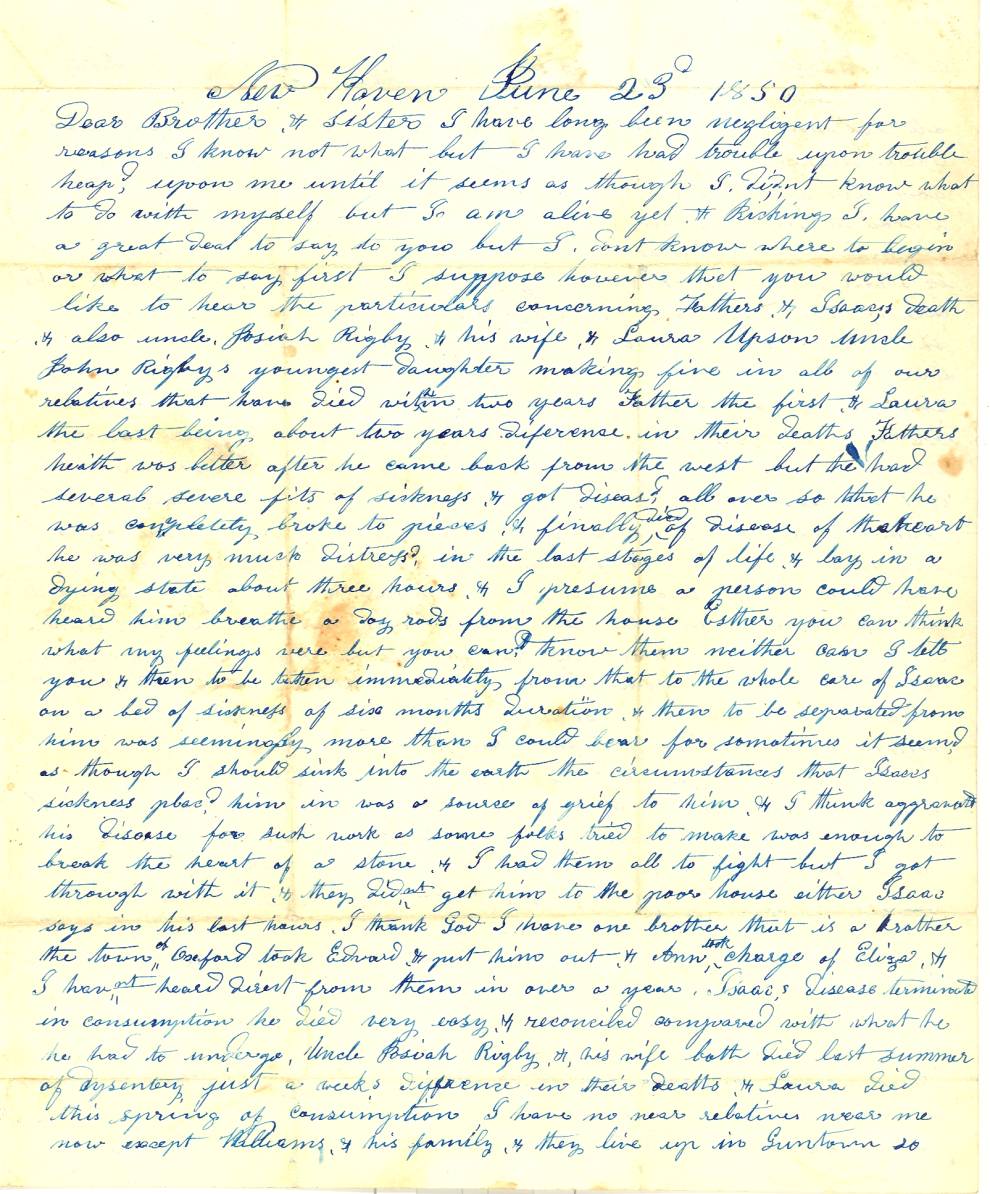 New Haven June 23d 1850
Dear Brother & Sister I have long been negligent for
reasons I know not what but I have had trouble upon trouble
heap'd upon me until it seems as though I. didn't know what
to do with myself but I am alive yet & Kicking I. have
a great deal to say to you but I. dont know where to begin
or what to say first I suppose however that you would
like to hear the particulars concerning Fathers & Isaacs death
& also uncle. Josiah Rigby & his wife & Laura Upson Uncle
John Rigbys youngest daughter making five in all of our
relatives that have died within two years Father the first & Laura
the last being about two years diference. in their deaths Fathers
health was better after he came back from the west but he had
several severe fits of sickness & got diseas'd all over so that he
was completely broke to pieces & finally died of disease of the heart
he was very much distress'd in the last stages of life & lay in a
dying state about three hours & I presume a person could have
heard him breathe a doz rods from the house Esther you can think
what my feelings were but you can't know them neither can I tell
you & then to be taken immediately from that to the whole care of Isaac
on a bed of sickness of six months duration & then to be separated from
him was seemingly more than I could bear for sometimes it seem'd
as though I should sink into the earth the circumstances that Isaacs
sickness plac'd him in was a source of grief to him & I think aggravated
his disease for such work as some folks tried to make was enough to
break the heart of a stone & I had them all to fight but I got
through with it & they did not get him to the poor house either Isaac
says in his last hours. I thank God I have one brother that is a brother
the town of Oxford took Edward & put him out & Ann took charge of Eliza &
I hav not heard direct from them in over a year. Isaac,s disease terminated
in consumption he died very easy & reconciled compared with what he
he had to undergo, Uncle Josiah Rigby & his wife both died last summer
of dysentery just a weeks difference in their deaths & Laura died
this spring of consumption I have no near relatives near me
now except Williams & his family & they live up in Guntown so